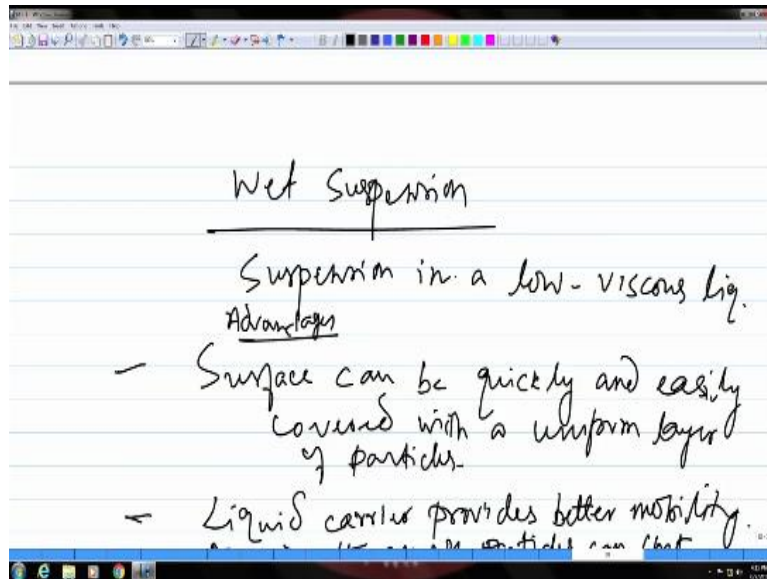 Wet Suspension
Suspension in a low-viscous liq.
Advantages
- Surface can be quickly and easily
covered with a uniform layer
of particles.
- Liquid carrier provides better mobility.
particles can